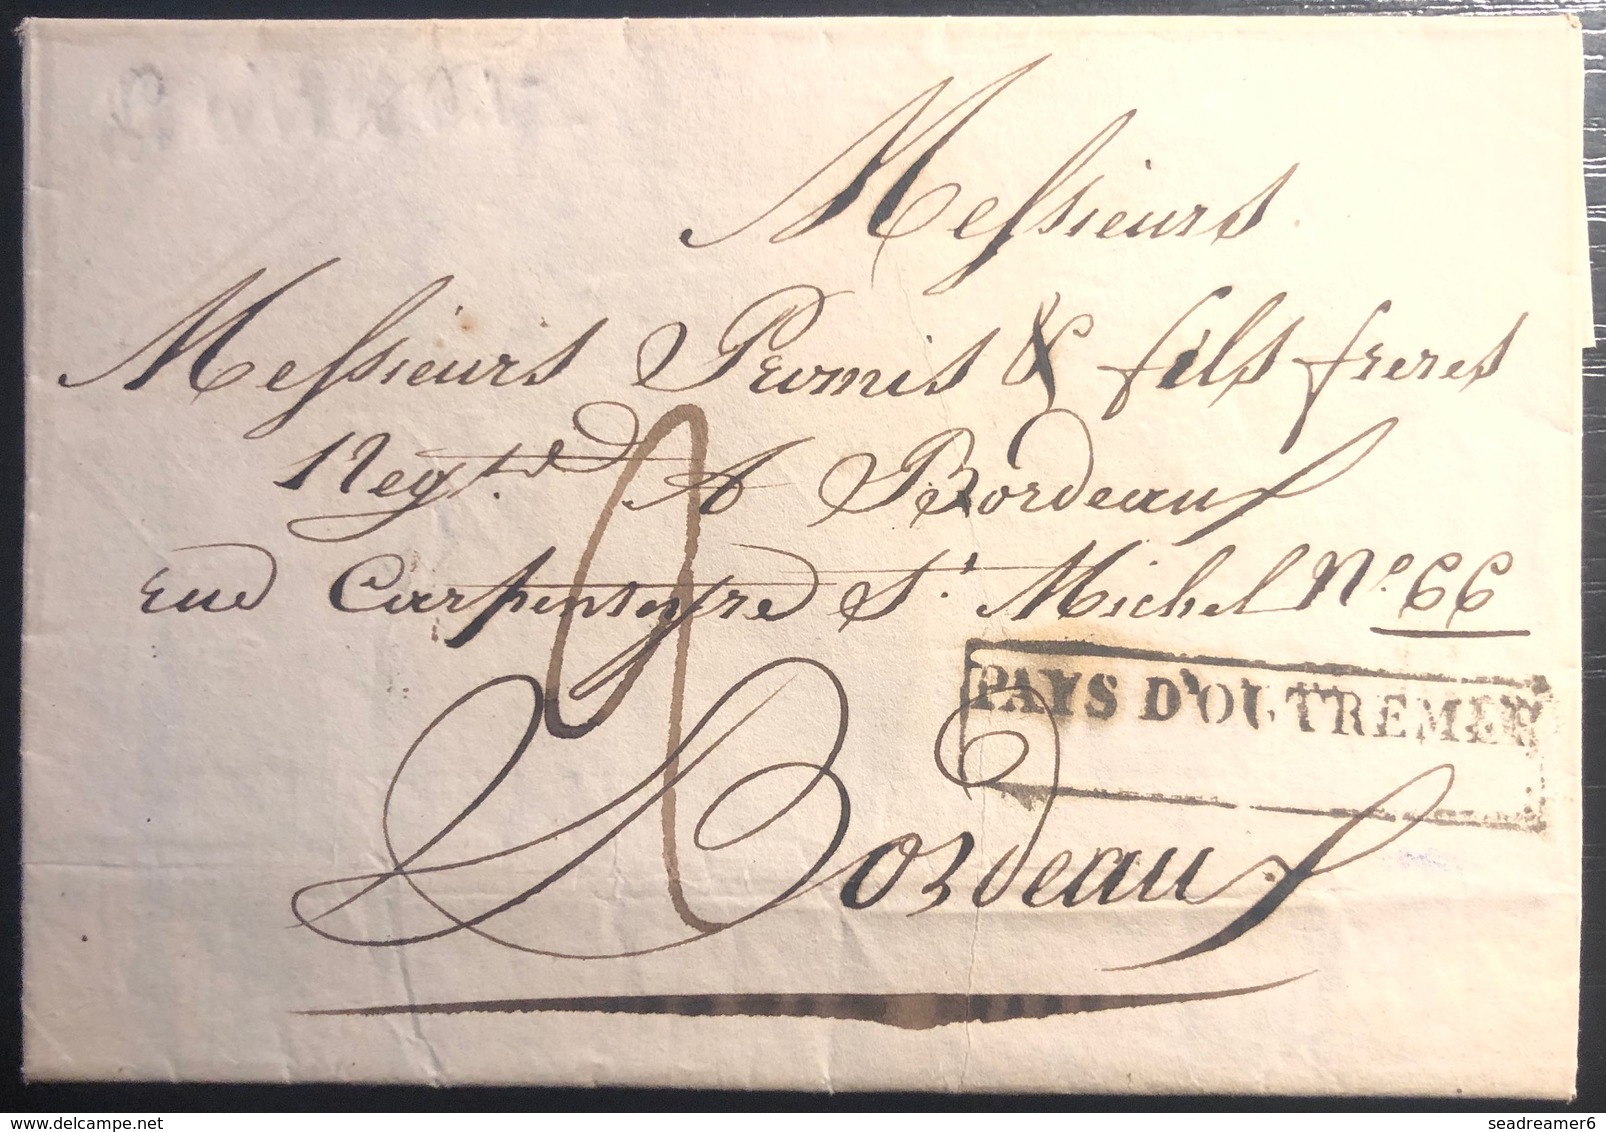 Messieurs
Messieurs Promis & fils freres
Negts. A Bordeaux
rue Carpenteyre St. Michel No. 66
PAYS D'OUTREMER
2
Bordeaux
delcampe.net
seadreamer6